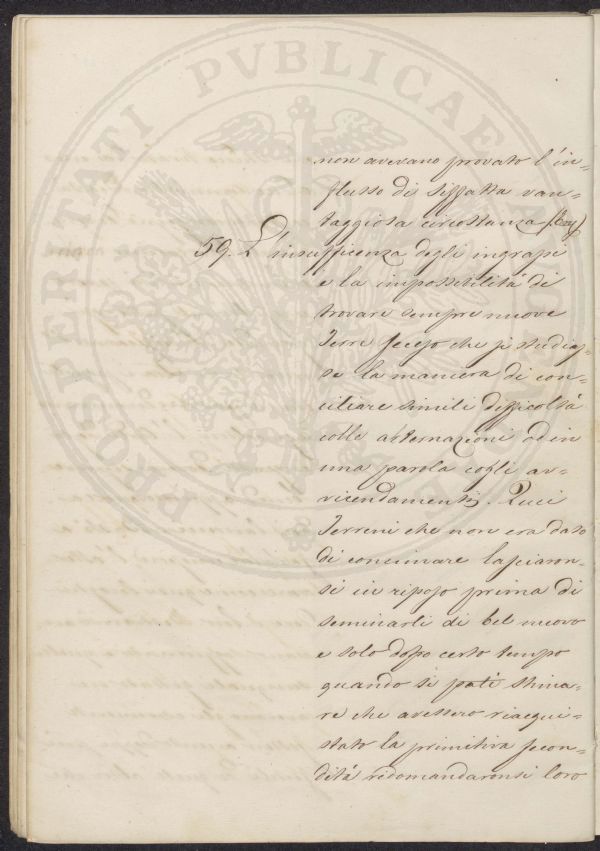 non avevano provato l'in=
flusso di siffatta van=
taggiosa circostanza
59. L'insufficenza degli ingrassi
e la impossibilità di
trovare sempre nuove
Terre fecesso che si studias=
se la maniera di con=
ciliare simili difficoltà
colle alternazioni od in
una parola cogli av=
vicendamenti. Quei
Terreni che non era dato
di concimare lasciaron=
si in riposo prima di
seminarli di bel nuovo
e solo dopo certo tempo
quando si potè stima=
re che avessero riacqui=
stato la primitiva fecon=
dità redomandaronsi loro
PROSPERITATI PVBLICAE